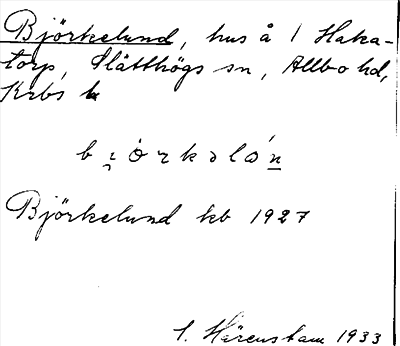 Björkelund, hus å 1 Haka-
torp, Slätthögs sn, Allbo hd,
Krbs l
b j ö r k ə l ó n
Björkelund kb 1927
S. Härenstam 1933